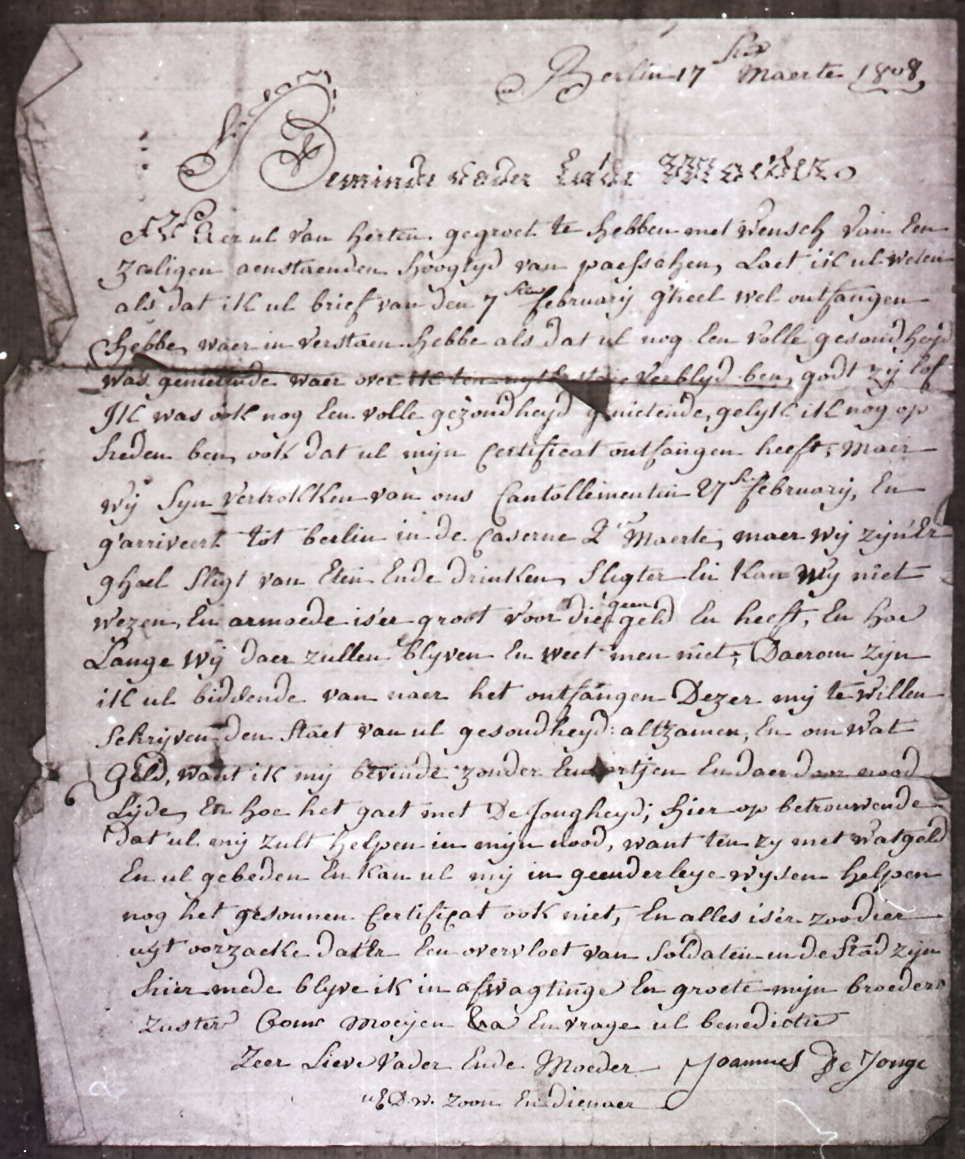 Berlin 17 Maerte 1808,
Beminde vader Ende Moeder
Naer ul van herten gegroet te hebben met wensch van Een
zaligen aenstaenden hoogtyd van paesschen, Laet ik ul weten
als dat ik ul brief van den 7 sten february g'heel wel ontfangen
hebbe, waer in verstaen hebbe als dat ul nog Een volle gesondheyd
was genietende waer over ik ten verblyd ben, godt zy lof
Ik was ook nog Een volle gezondheyd genietende, gelyk ik nog op
heden ben, ook dat ul mijn Certificat ontfangen heeft, Maer
wij Syn vertrokken van ons Cantollementin 27 february, En
g'arriveert tot berlin in de Caserne 2 Maerte, maer wij zijn Er
gheel sligt van Eten Ende drinken, sligter En kan wy niet
wezen, En armoede is'er groot voor die geen geld En heeft, En hoe
Lange wij daer zullen blyven En weet men niet, Daerom zijn
ik ul biddende van naer het ontfangen Dezer mij te willen
schrijven den staet van ul gesondheyd altzamen, En om wat
Geld, want ik mij bevinde zonder En daer door nood
Lijde, En hoe het gaet met De Jongheyd, hier op betrouwende
dat ul mij zult helpen in mijn nood, want ten zy met wat geld
En ul gebeden En kan ul mij in geenderleye wysen helpen
nog het gesonnen Certificat ook niet, En alles is'er zoo dier
uyt oorzaeke dat'er Een overvloet van soldaten in de stad zijn
hier mede blyve ik in afwagtinge En groete mijn broeders
zuster Cooms Moeijen &a En vrage ul benedictie
Zeer Lieve Vader Ende Moeder Joannes De Jonge
uEDw. zoon En dienaer